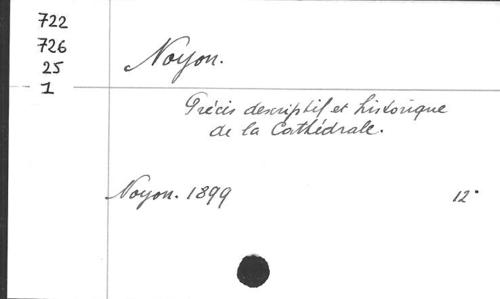 722
726
25
1
Noyon.
Précis descriptif et historique
de la Cathédrale.
Noyon. 1899
12°